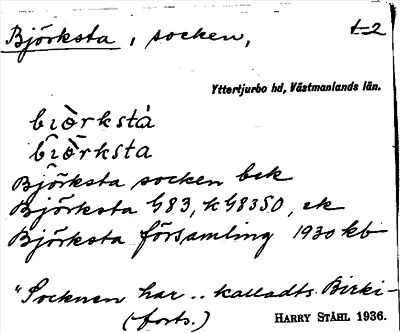 Björksta, socken, t=2
Yttertjurbo hd, Västmanlands län.
bi̯òrkstá
bi̯ò̄rksta
Björksta socken bek
Björksta G83, kG83SO, ek
Björksta församling 1930 kb
"Socknen har .. kalladts Birki-
(forts.)
HARRY STÅHL 1936.